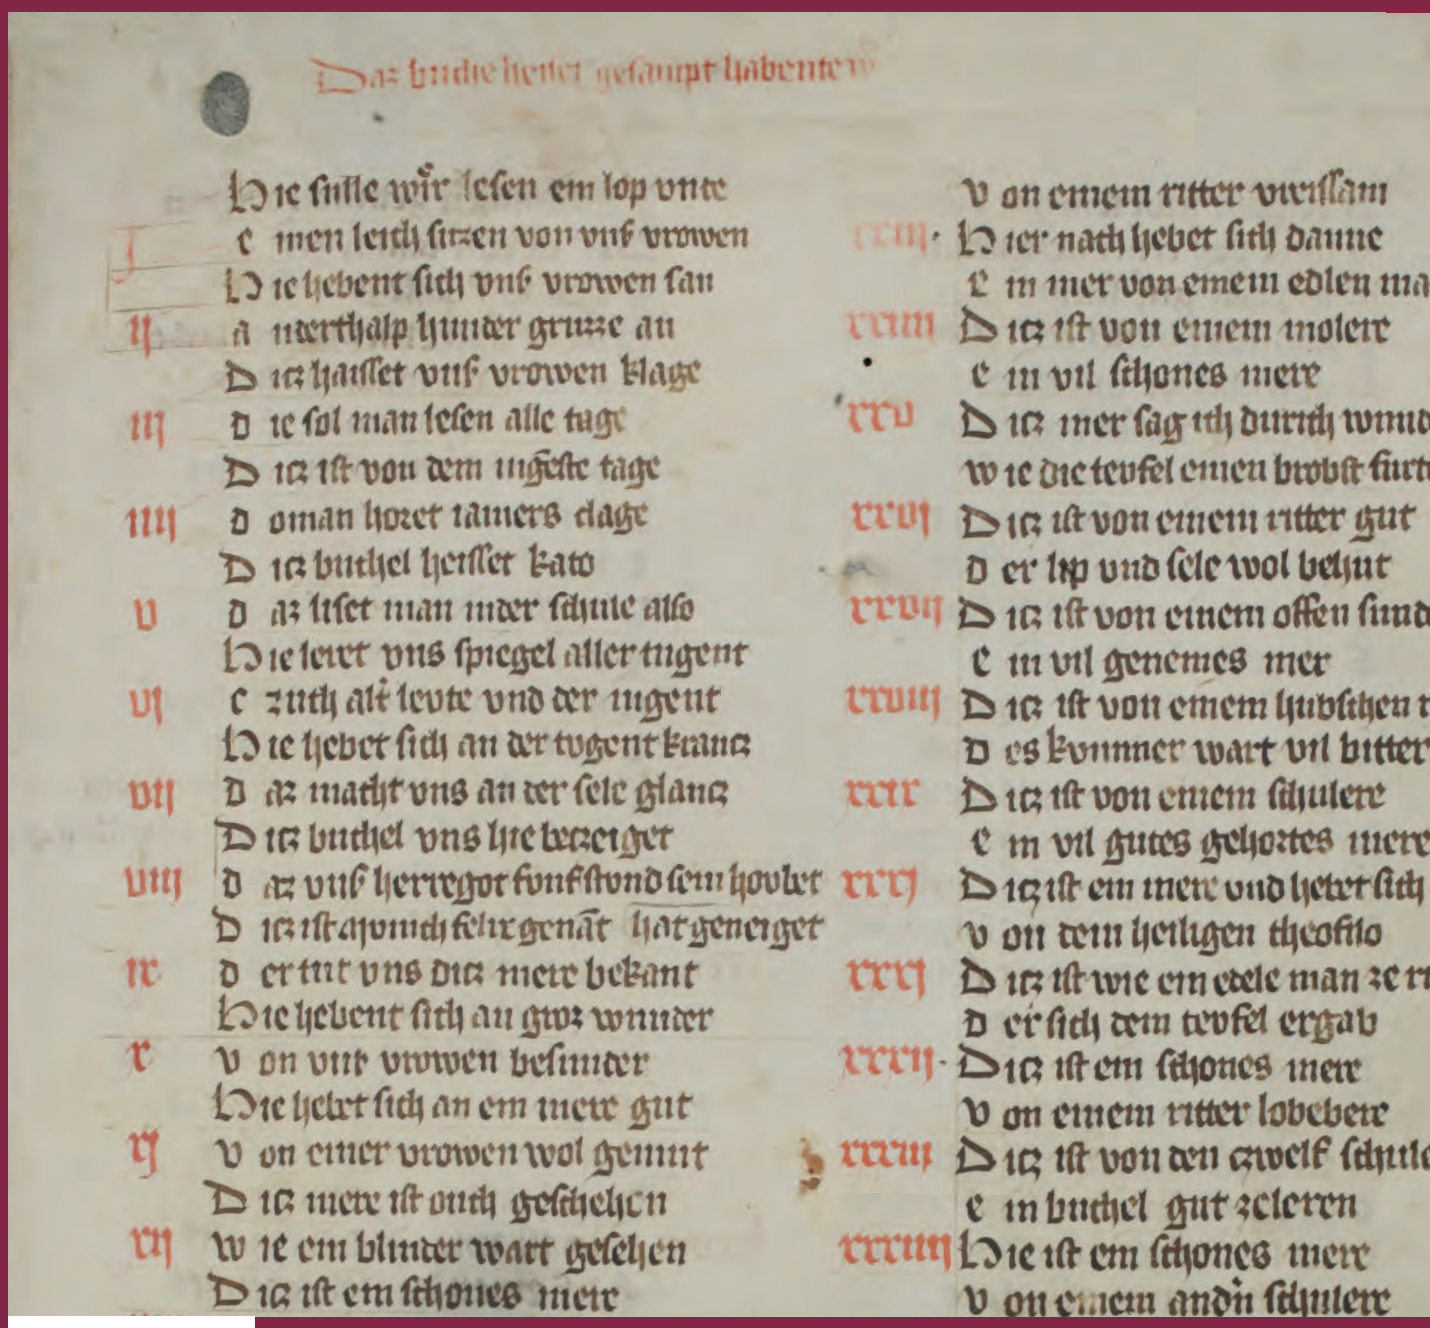 Daz buche heizet gesampt habentew
Hie sulle wir lesen ein lop vnte
j einen leich sitzen von vnſ vrowen
Hie hebent sich vnſ vrowen san
ij anderthalp hunder gruzze an
Ditz haisset vnſ vrowen klage
iij die sol man lesen alle tage
Ditz ist von dem iūgeste tage
iiij do man horet iamers clage
Ditz buchel heisset kato
v daz liset man inder schule also
Hie leret vns spiegel aller tugent
vj e zuch alt̄ levte vnd der iugent
Hie hebet sich an der tvgent krancz
vij daz macht vns an der sele glancz
Ditz buchel vns hie bezeiget
viij daz vnſ herregot fvnfstvnd sein hovbet
Ditz ist a mvnich felix genāt hat geneiget
ix der tut vns ditz mere bekant
Hie hebent sich an groz wunder
x von vnſ vrowen besunder
Hie hebet sich an ein mere gut
xj von einer vrowen wol gemut
Ditz mere ist ouch geschehen
xij wie ein blinder wart gesehen
Ditz ist ein schones mere
von einem ritter
xxiij Hier nach hebet sich danne
ein mer von einem edlen ma
xxiiij Ditz ist von einem molere
ein vil schones mere
xxv Ditz mer sag ich durich wund
wie die tevfel einen brobst furt
xxvj Ditz ist von einem ritter gut
der lip vnd sele wol behut
xxvij Ditz ist von einem offen sund
ein vil genemes mer
xxviij Ditz ist von einem hubschen r
des kvmmer wart vil bitter
xxix Ditz ist von einem schulere
ein vil gutes gehortes mere
xxxj Ditz ist ein mere vnd hebet sich
von dem heiligen theofilo
xxxj Ditz ist wie ein edele man ze ri
der sich dem tevfel ergab
xxxij Ditz ist ein schones mere
von einem ritter lobebere
xxxiij Ditz ist von den czwelf schule
ein buchel gut ze leren
xxxiiij Hie ist ein schones mere
von einem andn̄ schulere